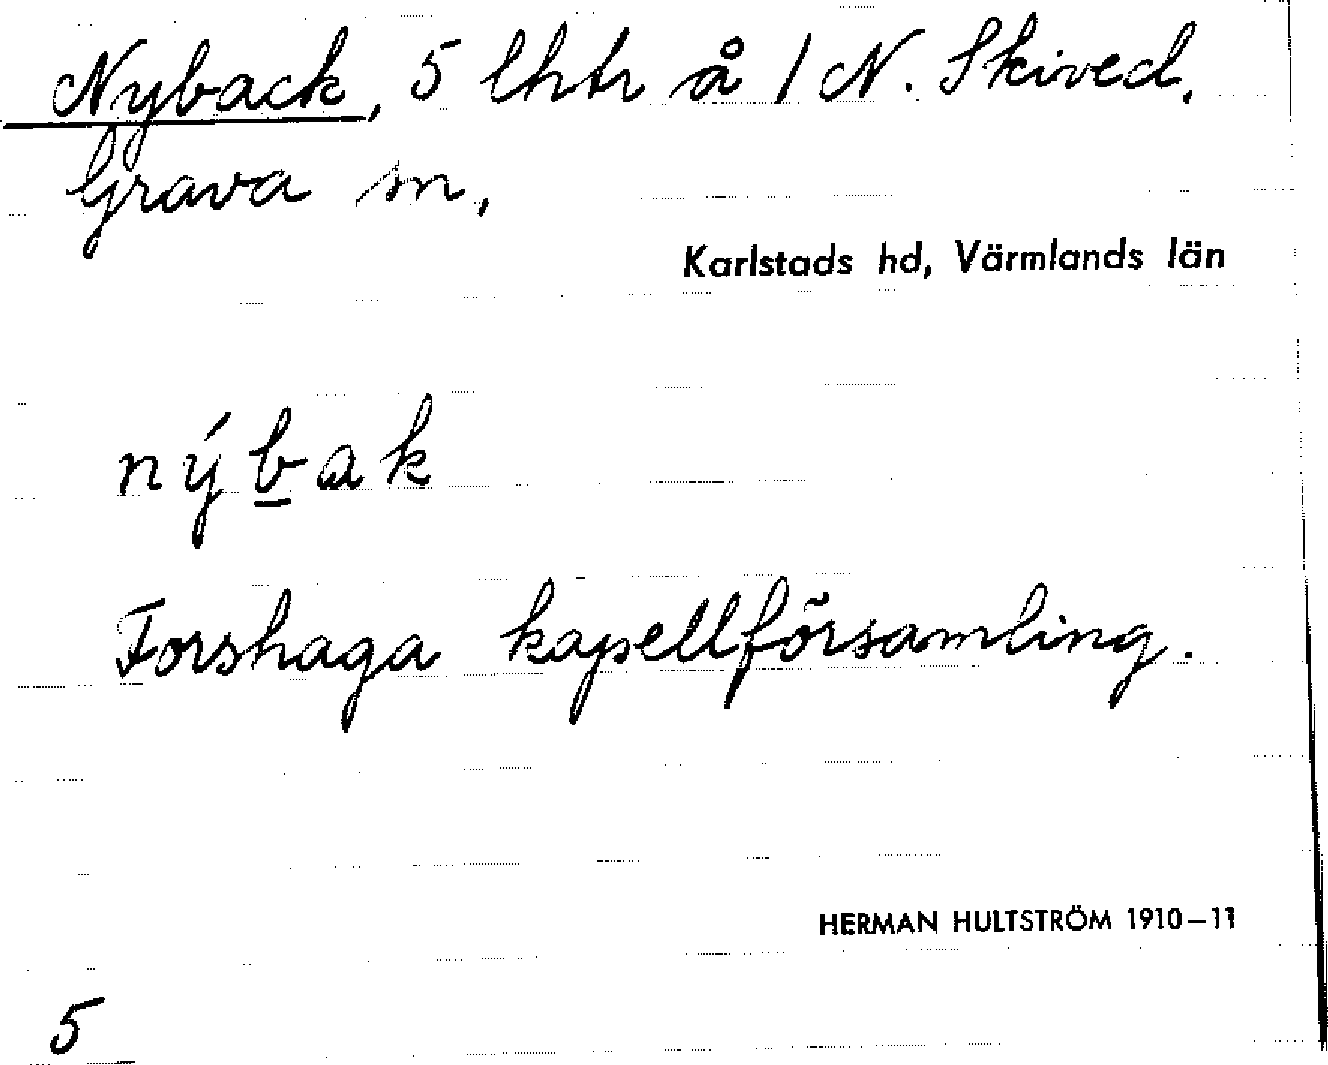 Nyback, 5 lhtr å 1 N. Skived,
Grava sn,
Karlstads hd, Värmlands län
nýbak
Forshaga kapellförsamling.
HERMAN HULTSTRÖM 1910–11
5